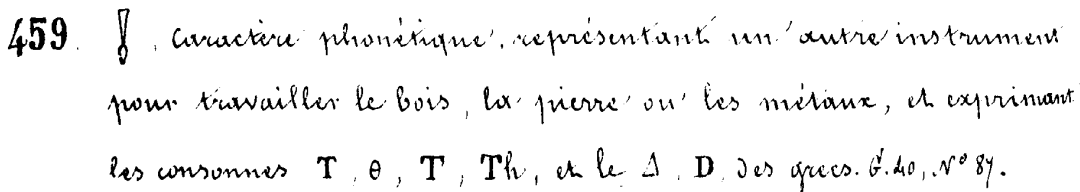 459. , caractère phonétique, représentant un autre instrument
pour travailler le bois, la pierre ou les métaux, et exprimant
les consonnes T, θ, T, Th, et le Δ, D, des grecs. G. 40, N° 87.